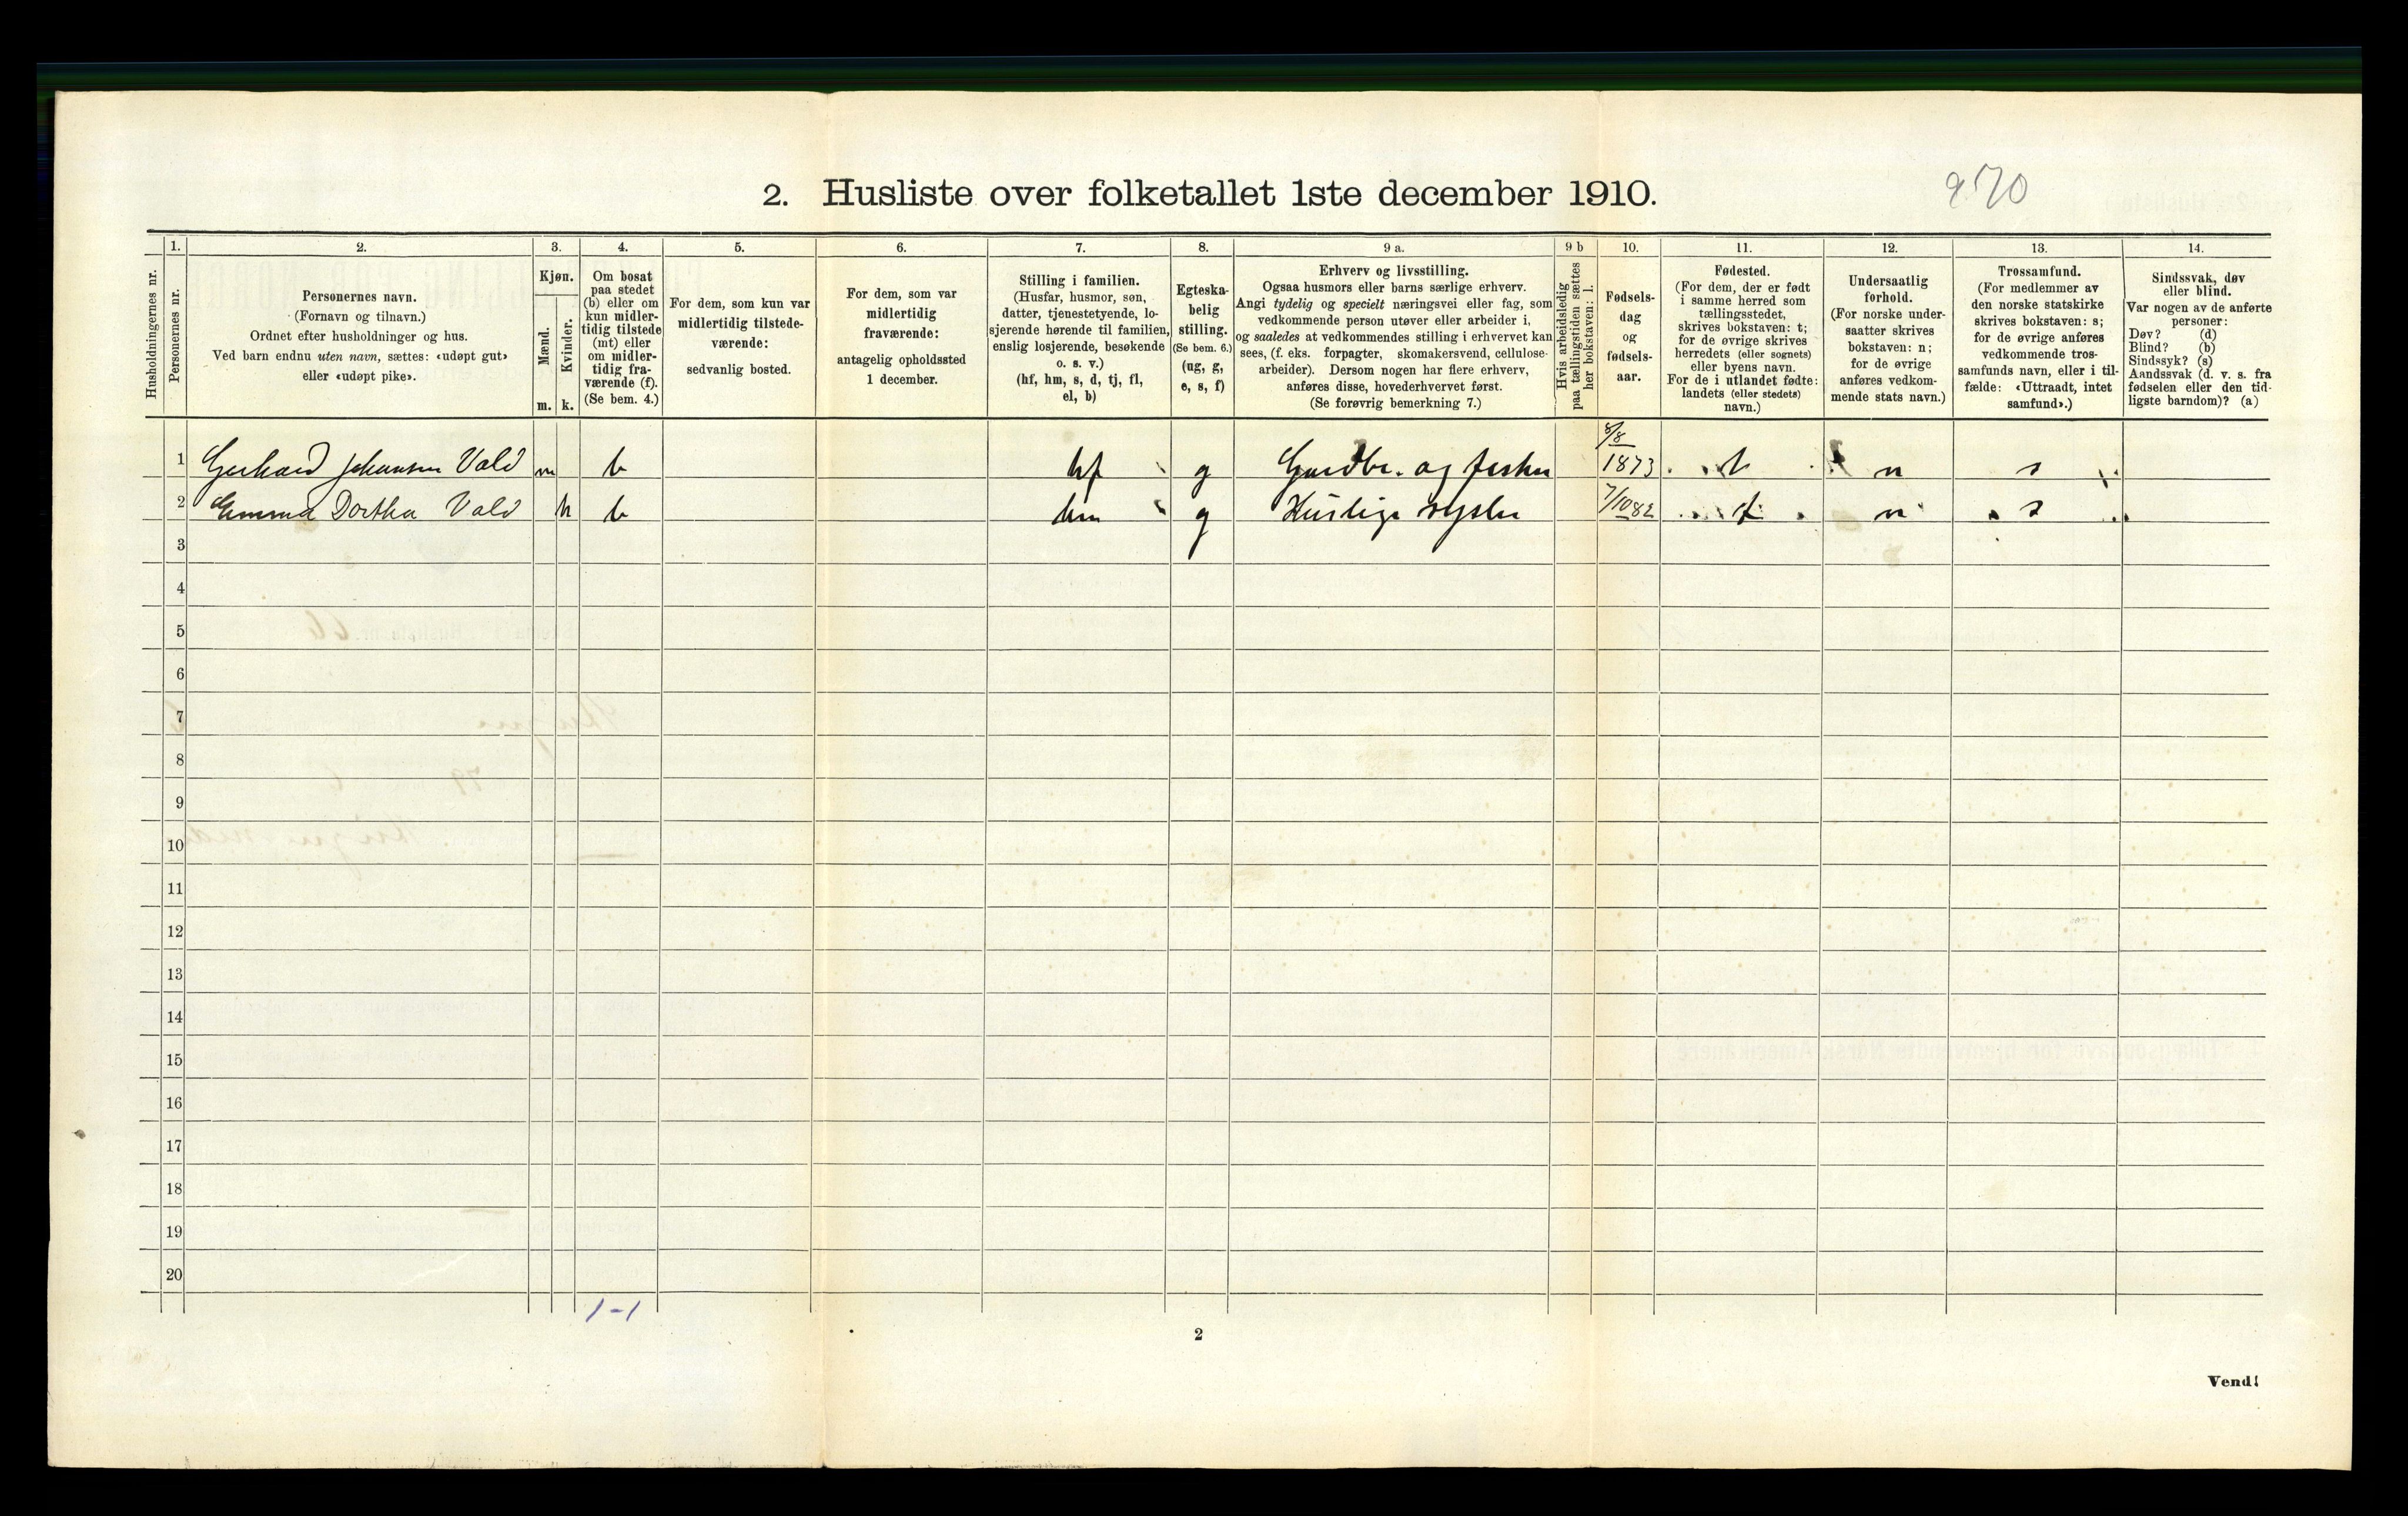 970
2. Husliste over folketallet 1ste december 1910.
Husholdningernes nr.
1.
Personernes nr.
2.
Personernes navn.
(Fornavn og tilnavn.)
Ordnet efter husholdninger og hus.
Ved barn endnu uten navn, sættes: «udøpt gut»
eller «udøpt pike».
3.
Kjøn.
Mænd.
Kvinder.
m. k.
4.
Om bosat
paa stedet
(b) eller om
kun midler-
tidig tilstede
(mt) eller
om midler-
tidig fra-
værende (f).
(Se bem. 4.)
5.
For dem, som kun var
midlertidig tilstede-
værende:
sedvanlig bosted.
6.
For dem, som var
midlertidig
fraværende:
antagelig opholdssted
1 december.
7.
Stilling i familien.
(Husfar, husmor, søn,
datter, tjenestetyende, lo-
sjerende hørende til familien,
enslig losjerende, besøkende
o. s. v.)
(hf, hm, s, d, tj, fl,
el, b)
8.
Egteska-
belig
stilling.
(Se bem. 6.)
(ug, g,
e, s, f)
9 a.
Erhverv og livsstilling.
Ogsaa husmors eller barns særlige erhverv.
Angi tydelig og specielt næringsvei eller fag, som
vedkommende person utøver eller arbeider i,
og saaledes at vedkommendes stilling i erhvervet kan
sees, (f. eks. forpagter, skomakersvend, cellulose-
arbeider). Dersom nogen har flere erhverv,
anføres disse, hovederhvervet først.
(Se forøvrig bemerkning 7.)
9 b
Hvis arbeidsledig
paa tællingstiden sættes
her bokstaven: l.
10.
Fødsels-
dag
og
fødsels-
aar.
11.
Fødested.
(For dem, der er født
i samme herred som
tællingsstedet,
skrives bokstaven: t;
for de øvrige skrives
herredets (eller sognets)
eller byens navn.
For de i utlandet fødte:
landets (eller stedets)
navn.)
12.
Undersaatlig
forhold.
(For norske under-
saatter skrives
bokstaven: n;
for de øvrige
anføres vedkom-
mende stats navn.)
13.
Trossamfund.
(For medlemmer av
den norske statskirke
skrives bokstaven: s;
for de øvrige anføres
vedkommende tros-
samfunds navn, eller i til-
fælde: «Uttraadt, intet
samfund».)
14.
Sindssvak, døv
eller blind.
Var nogen av de anførte
personer:
Døv? (d)
Blind? (b)
Sindssyk? (s)
Aandssvak (d. v. s. fra
fødselen eller den tid-
ligste barndom)? (a)
1 Gerhard Johansen Vald m b hf g Gardbr. og fisker 8/8 1873 t n s
2 Emma Dorthea Vald k b hm g Huslige sysler 7/10 82 t n s
3
4
5
6
7
8
9
10
11
12
13
14
15
16
17
18
19
20
1-1
2
Vend!